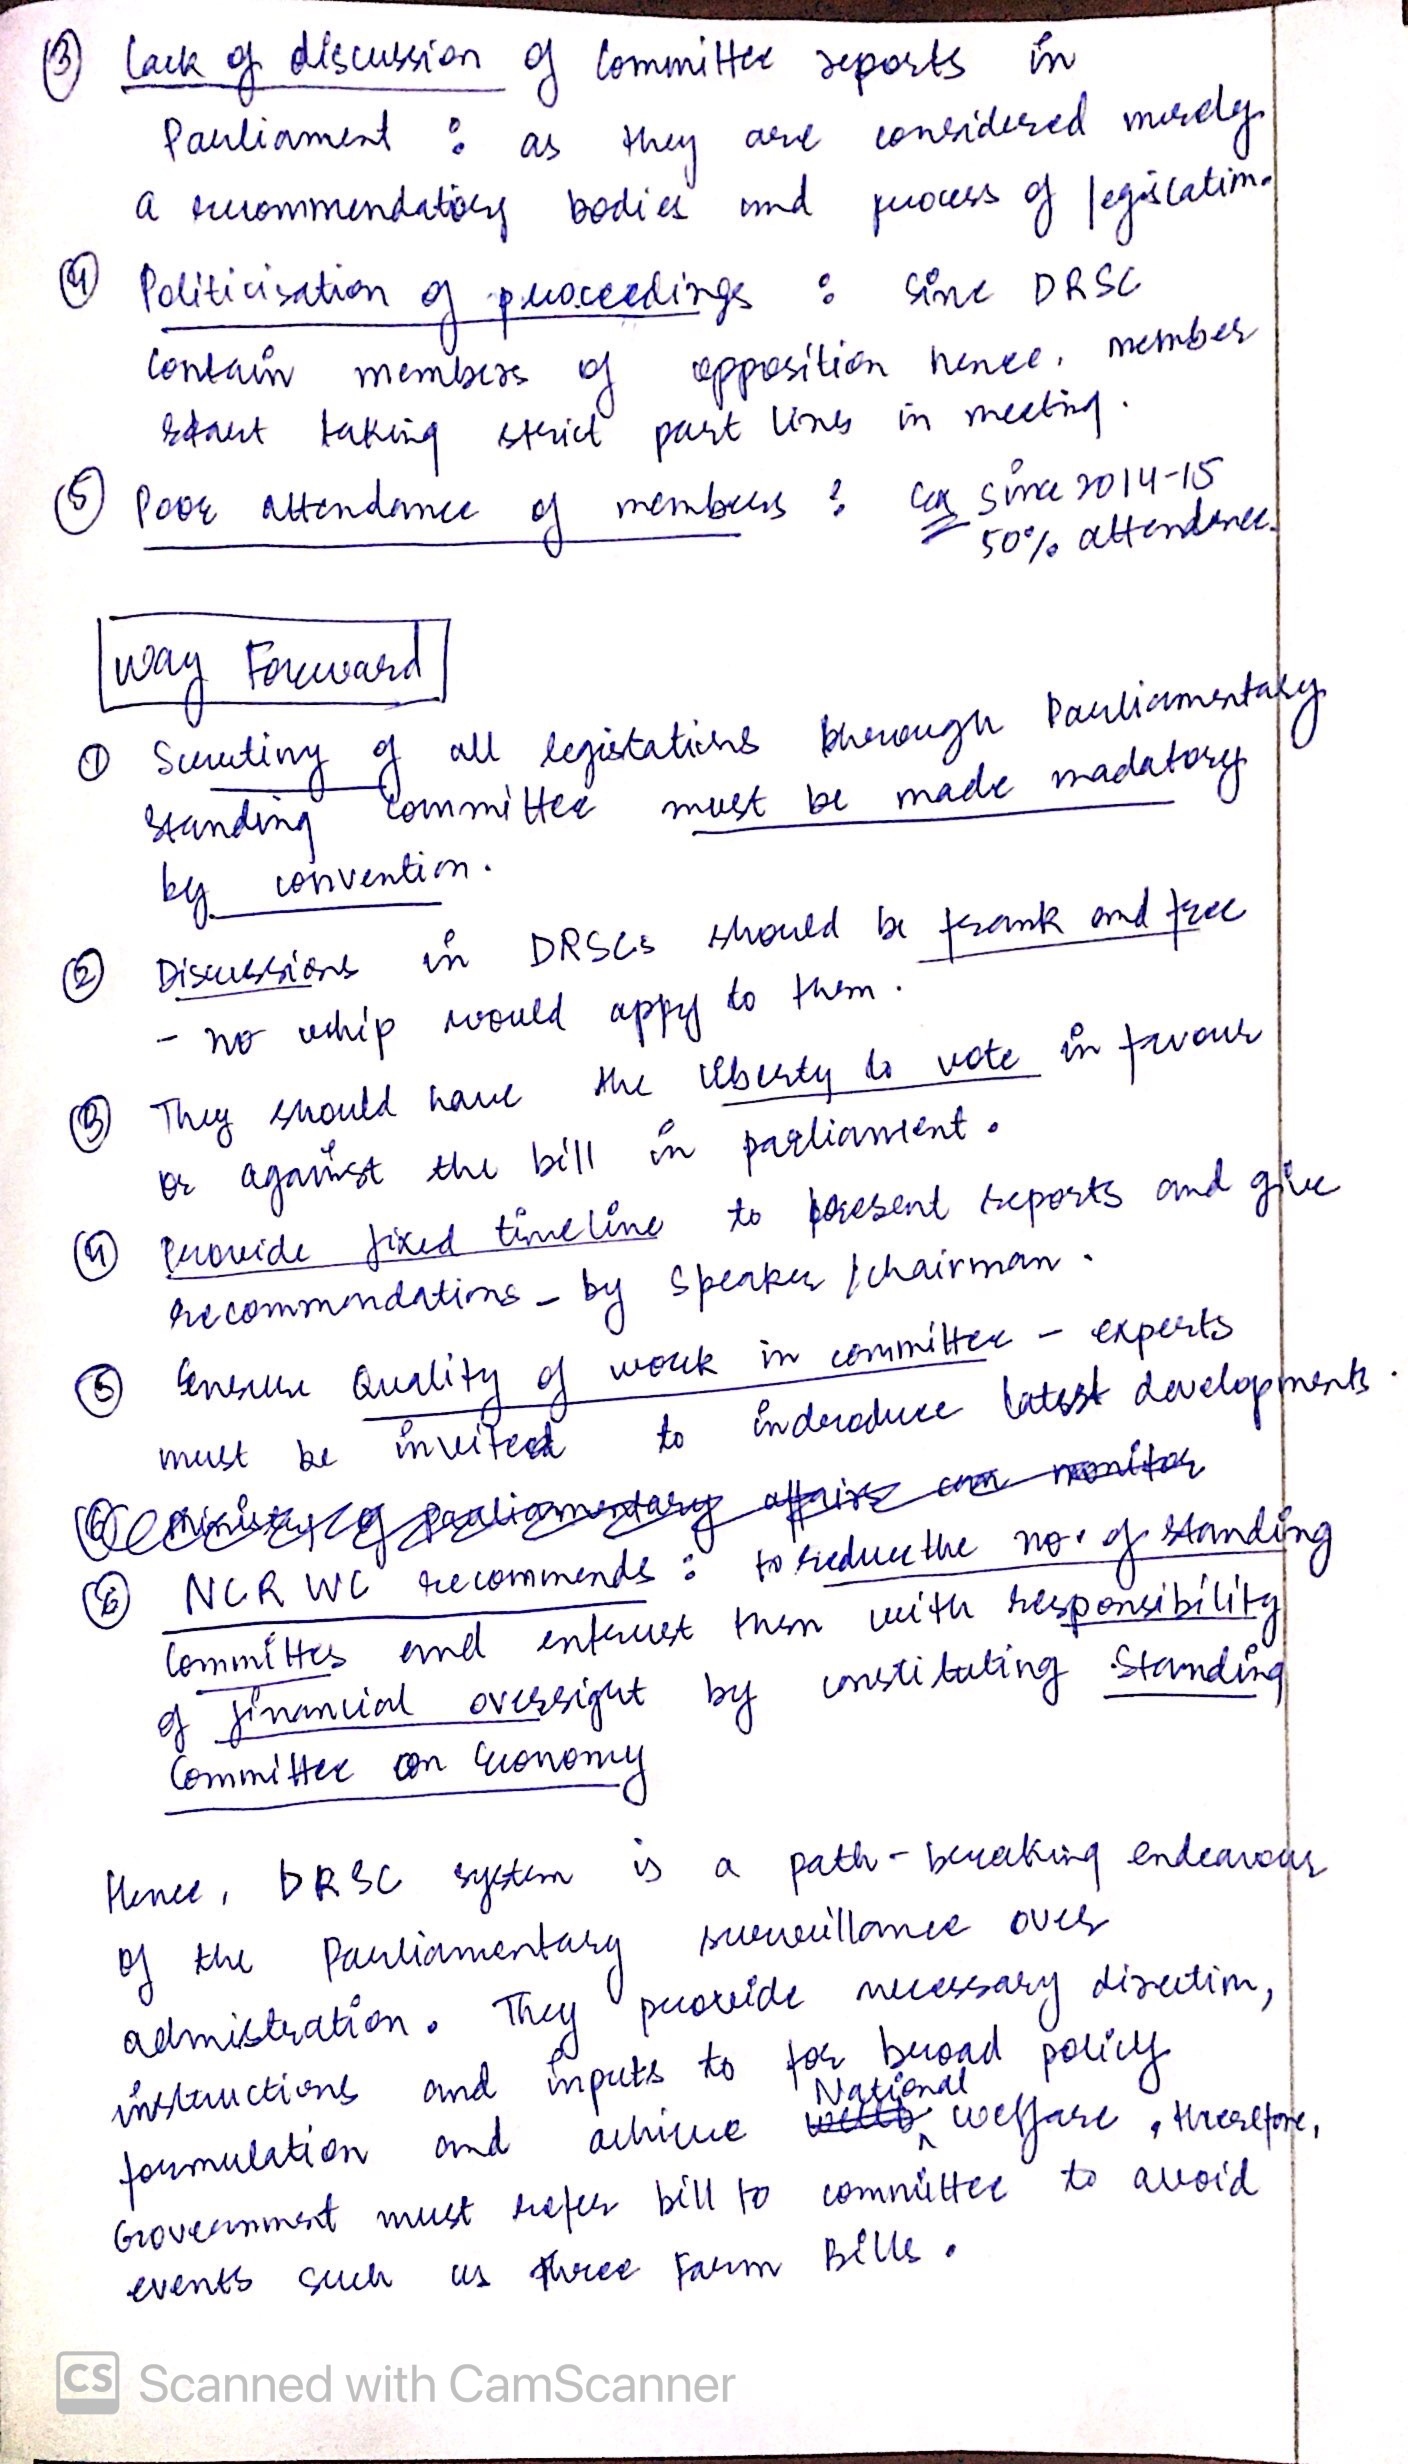 ③ Lack of discussion of Committee reports in
Parliament : as they are considered merely
a recommendatory bodies and process of legislation.
④ Politicisation of proceedings : Since DRSC
contain members of opposition hence, member
start taking strict part lines in meeting.
⑤ Poor attendance of members : eg since 2014-15
50% attendance.
Way Forward
① Scrutiny of all legistations through Parliamentary
Standing Committee must be made madatory
by convention.
② Discussions in DRSCs should be frank and free
- no whip would appy to them.
③ They should have the liberty to vote in favour
or against the bill in parliament.
④ Provide fixed timeline to present reports and give
recommendations - by Speaker / chairman.
⑤ Ensure Quality of work in committee - experts
must be invited to inderoduce latest developments.
⑥ Ministry of parliamentary affairs can monitor
⑥ NCRWC recommends : to reduce the no. of standing
Committes and entrust them with responsibility
of financial oversight by constituting Standing
Committee on Economy
Hence, DRSC system is a path-breaking endeavour
of the Parliamentary surveillance over
admistration. They provide necessary direction,
instructions and inputs to for broad policy
formulation and achieve National welfare, therefore,
Government must refer bill to committee to avoid
events such as three Farm Bills.
CS Scanned with CamScanner